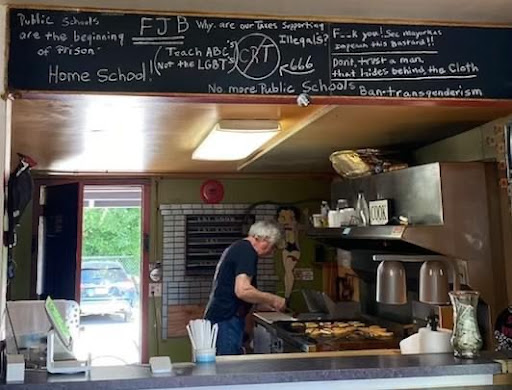 Public Schools
are the beginning
of Prison
Home School!
FJB
(Teach ABC's
Not the LGBT's)
CRT
666
Why are our Taxes Supporting
Illegals?
No more Public Schools
F--k you! Sec mayorkas
impeach this Bastard!!
Dont, trust a man,
that hides behind, the Cloth
Ban-transgenderism
COOK